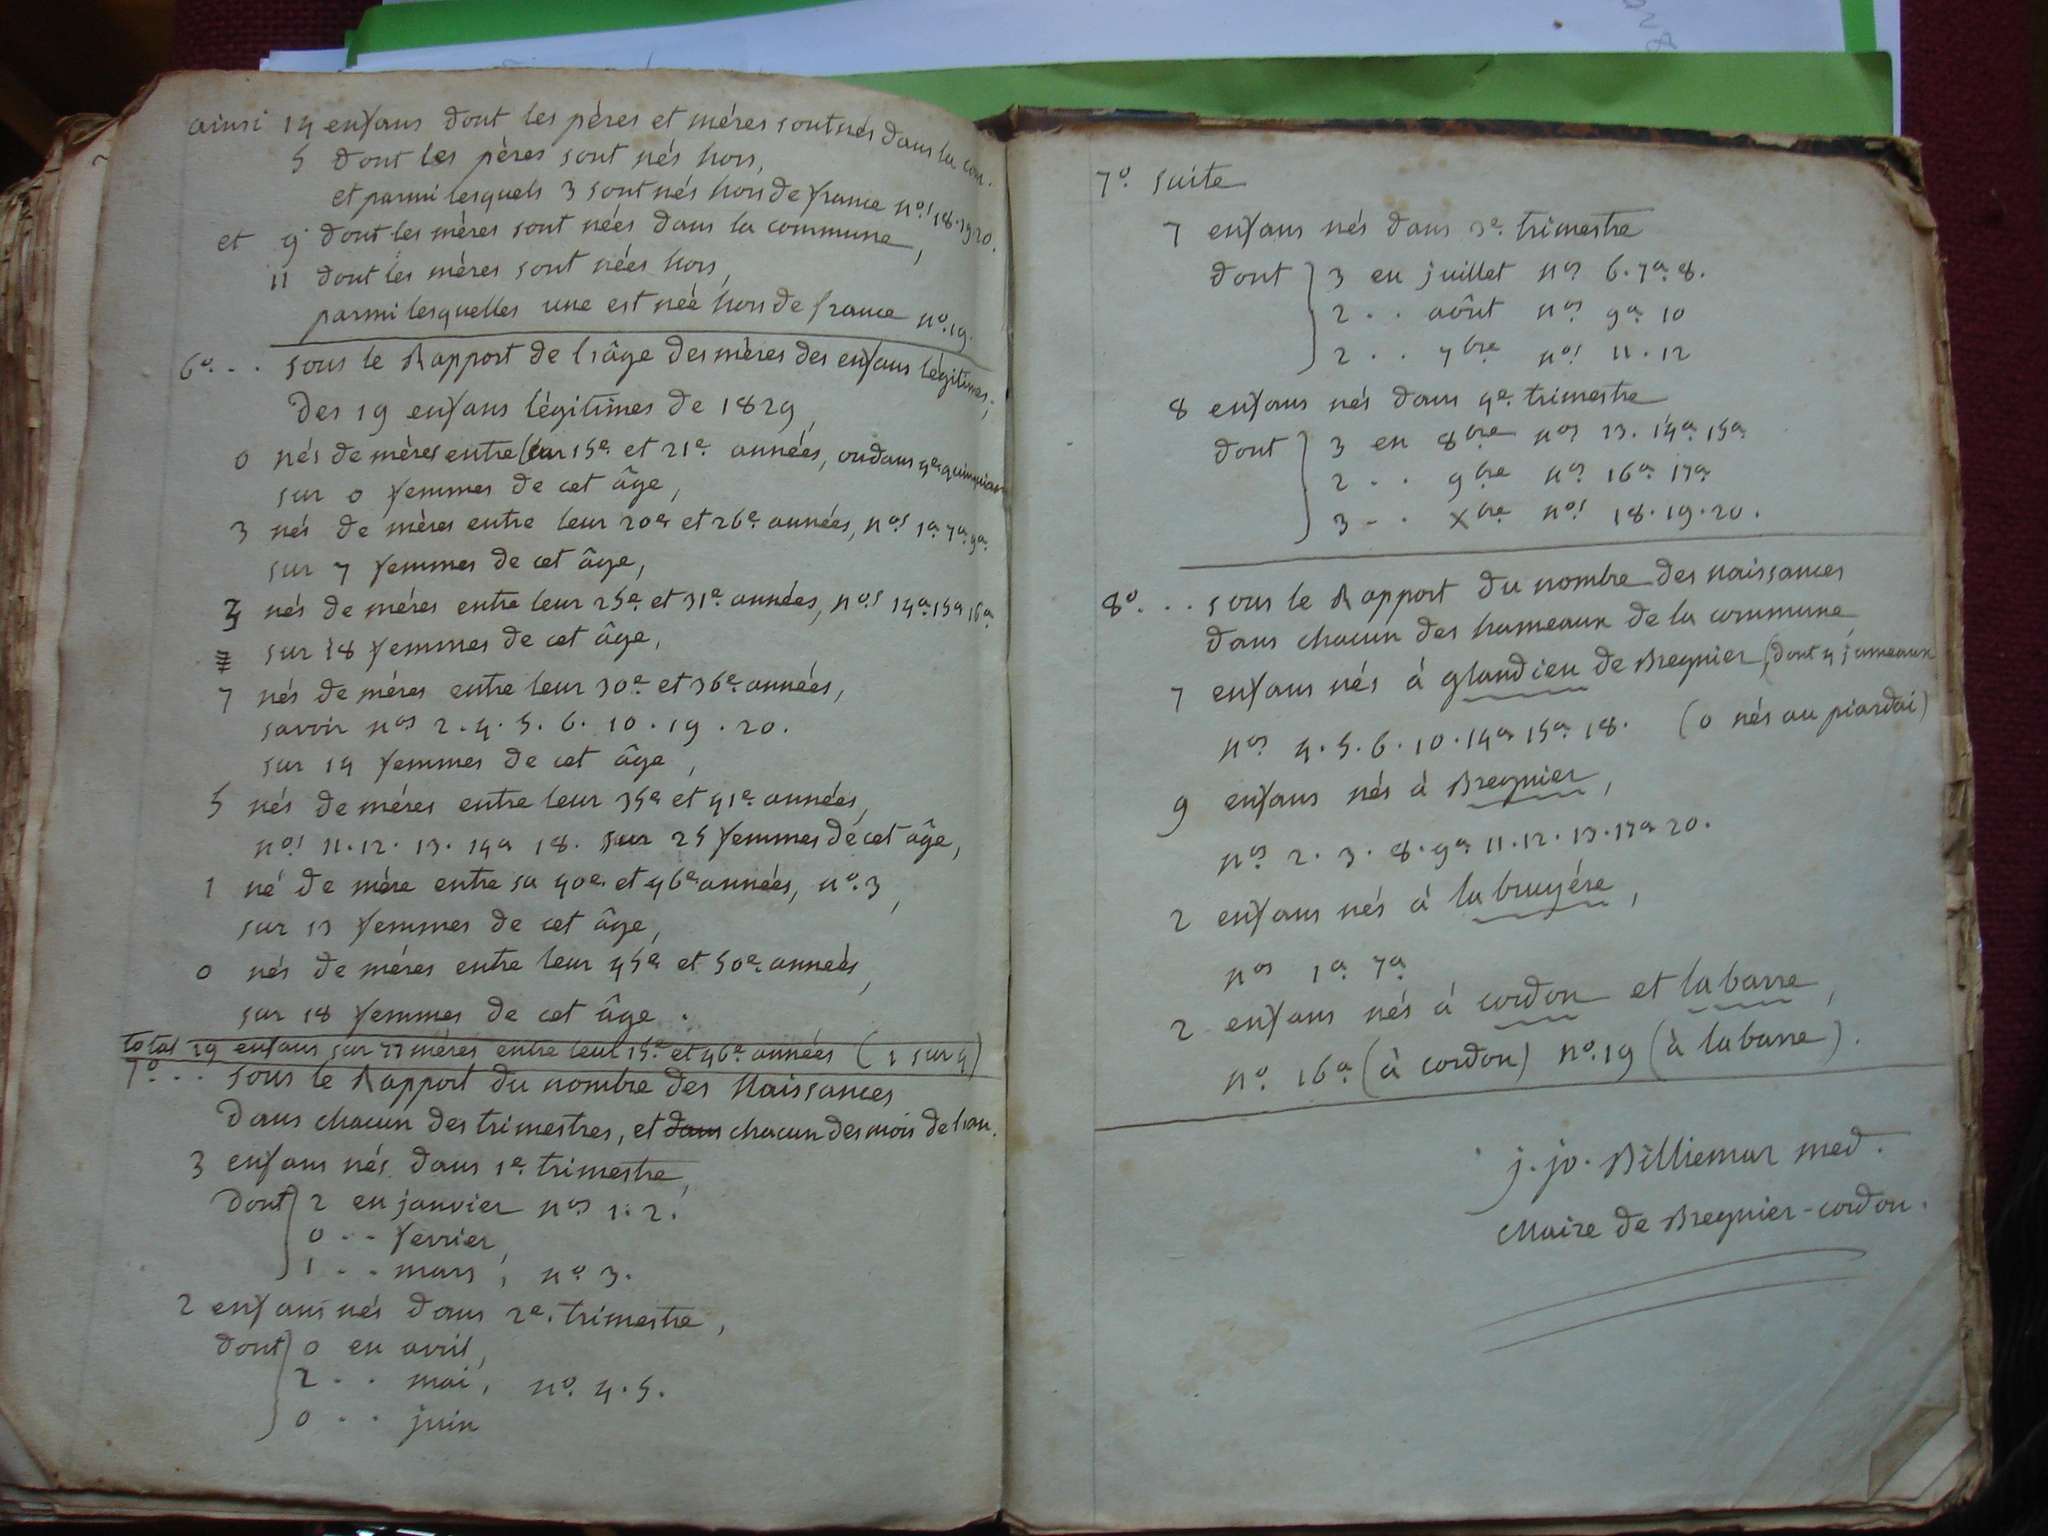 ainsi 14 enfans dont les pères et mères sont nés dans la com.
5 dont les pères sont nés hors,
et parmi lesquels 3 sont nés hors de france nos 18. 19 20.
et 9 dont les mères sont nées dans la commune,
11 dont les mères sont nées hors,
parmi lesquelles une est née hors de france no. 19.
6o. . . sous le Rapport de l'âge des mères des enfans légitimes;
Des 19 enfans légitimes de 1829
0 nés de mères entre leur 15e et 21e années, ou dans 4e
sur 0 femmes de cet âge,
3 nés de mères entre leur 20e et 26e années, nos 1a 7a 9a
sur 7 femmes de cet âge,
3 nés de méres entre leur 25e et 31e années, nos 14a 15a 16a
sur 18 femmes de cet âge,
7 nés de méres entre leur 30e et 36e années,
savoir nos 2. 4. 5. 6. 10. 19. 20.
sur 14 femmes de cet âge,
5 nés de méres entre leur 35e et 41e années,
nos 11. 12. 13. 14a 18. sur 25 femmes de cet âge,
1 né de mère entre sa 40e et 46e années, no. 3,
sur 13 femmes de cet âge,
0 nés de méres entre leur 45e et 50e années,
sur 18 femmes de cet âge.
total 19 enfans sur 77 mères entre leur 15e et 46e années (1 sur 4)
7o. . . sous le Rapport du nombre des Naissances
Dans chacun des trimestres, et dans chacun des mois de l'an.
3 enfans nés dans 1e trimestre,
Dont 2 en janvier nos 1. 2.
0 . . fevrier,
1 . . mars, no 3.
2 enfans nés dans 2e. trimestre,
dont 0 en avril,
2 . . mai, no. 4. 5.
0 . . juin
7o. suite
7 enfans nés dans 3e. trimestre
dont 3 en juillet nos 6. 7a 8.
2 . . aôut nos 9a 10
2 . . 7bre nos 11. 12
8 enfans nés dans 4e. trimestre
dont 3 en 8bre nos 13. 14a 15a
2 . . 9bre nos 16a 17a
3 . . Xbre nos 18. 19. 20.
8o. . . sous le Rapport du nombre des naissances
dans chacun des hameaux de la commune
7 enfans nés á glandieu de Bregnier (dont 4 jumeaux
nos 4. 5. 6. 10. 14a 15a 18. (0 nés au piardai)
9 enfans nés á Bregnier,
nos 2. 3. 8. 9a 11. 12. 13. 17a 20.
2 enfans nés á la bruyére,
nos 1a 7a
2 enfans nés á cordon et la barre,
no. 16a (à cordon) no. 19 (à la barre).
j. jo. Billiemar med.
Maire de Bregnier-cordon.